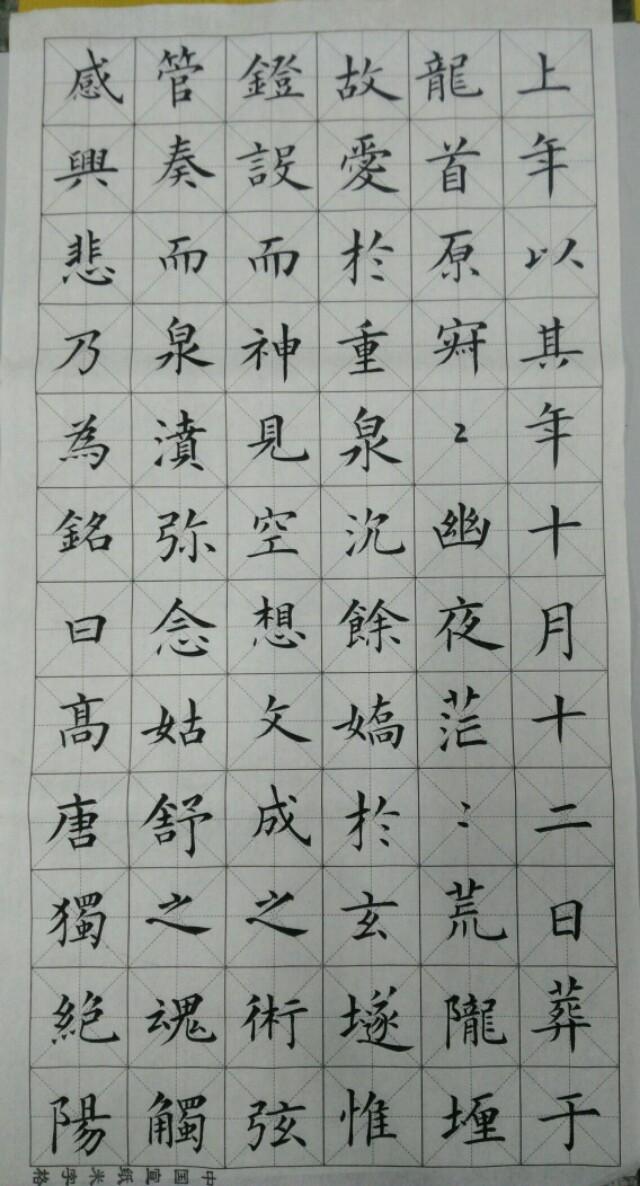 上年以其年十月十二日葬于
龍首原寂〻幽夜茫〻荒隴埋
故愛於重泉沉餘嬌於玄𡑞惟
鐙設而神見空想文成之術弦
管奏而泉濆弥念姑舒之魂觸
感興悲乃為銘曰髙唐獨絕陽
中国宣纸米字格